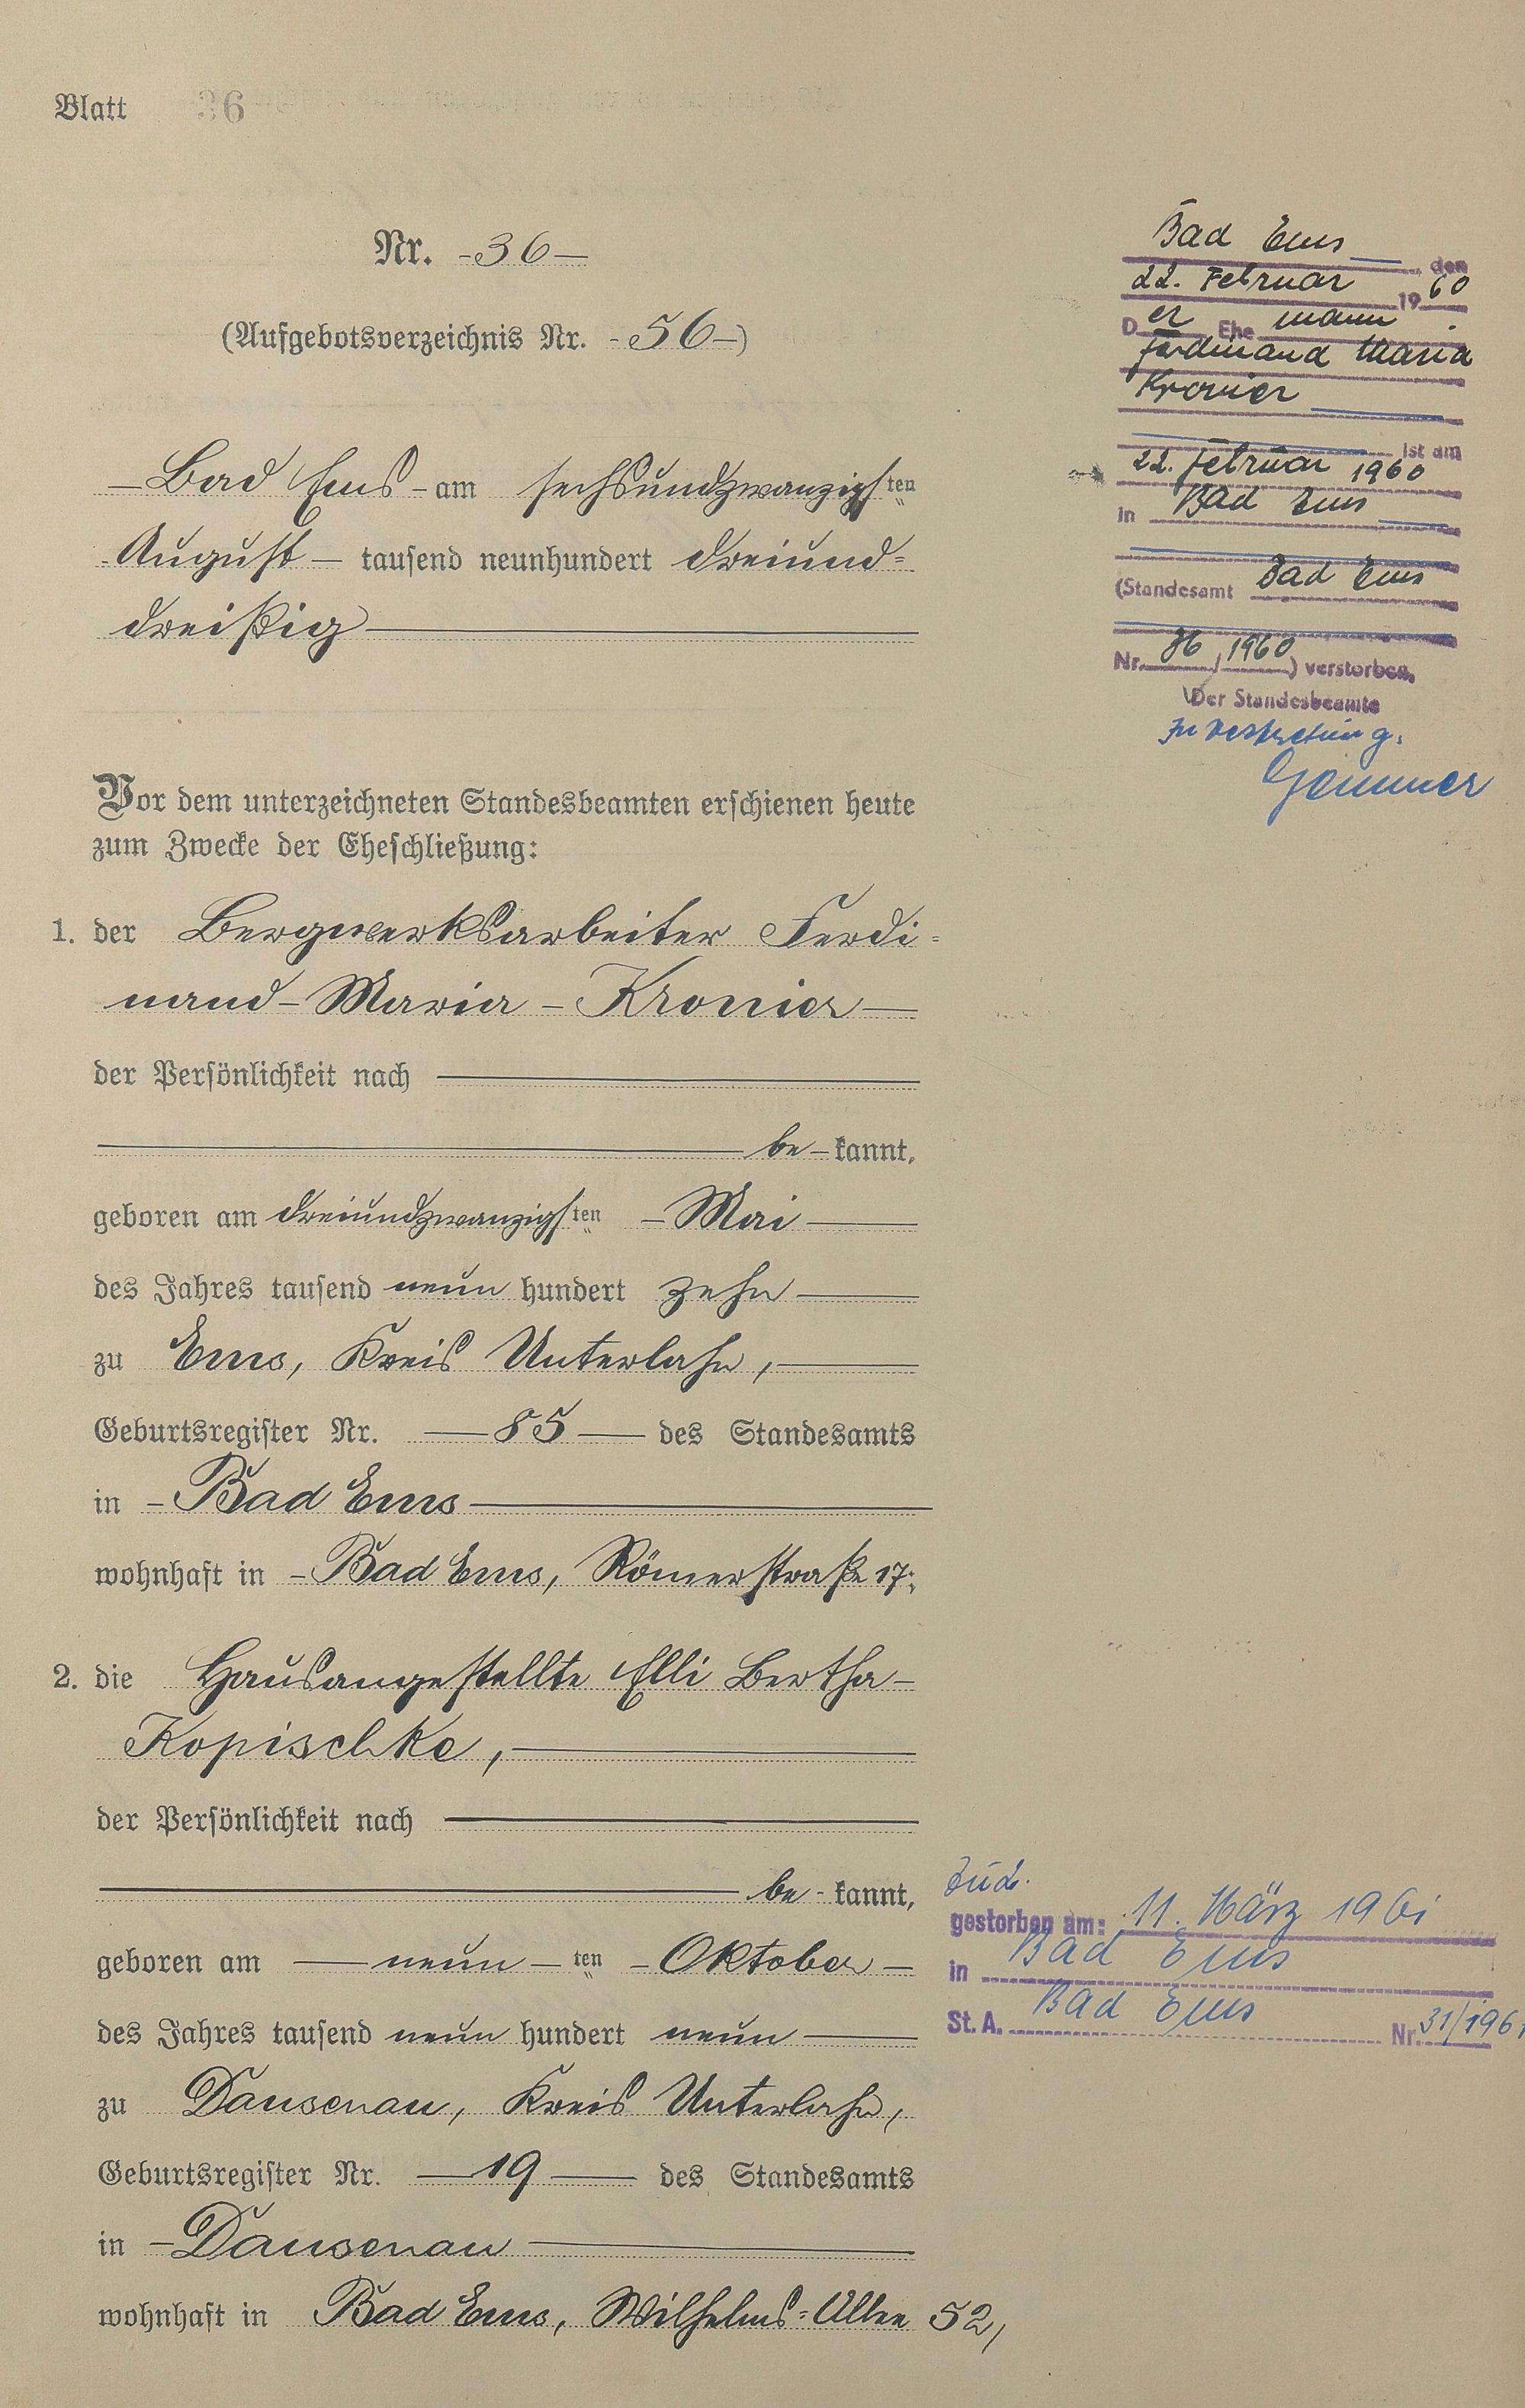 Blatt 36
Nr. -36-
(Aufgebotsverzeichnis Nr. -56-)
-Bad Ems- am sechsundzwanzigsten
August- tausend neunhundert dreiund=
dreißig
Vor dem unterzeichneten Standesbeamten erschienen heute
zum Zwecke der Eheschließung:
1. der Bergwerksarbeiter Ferdi=
nand-Maria-Kronier-
der Persönlichkeit nach
be-kannt,
geboren am dreiundzwanzigsten -Mai-
des Jahres tausend neun hundert zehn
zu Ems, Kreis Unterlahn,
Geburtsregister Nr. -85- des Standesamts
in -Bad Ems
wohnhaft in -Bad Ems, Römerstraße 17;
2. die Hausangestellte Elli Bertha-
Kopischke,
der Persönlichkeit nach
be-kannt,
geboren am -neun-ten -Oktober-
des Jahres tausend neun hundert neun
zu Dausenau, Kreis Unterlahn,
Geburtsregister Nr. -19- des Standesamts
in -Dausenau
wohnhaft in Bad Ems, Wilhelms=Allee 52,
Bad Ems, den
22. Februar 1960
Der Ehemann
Ferdinand Maria
Kronier
ist am
22. Februar 1960
in Bad Ems
(Standesamt Bad Ems
Nr. 36/1960) verstorben.
Der Standesbeamte
In Vertretung:
gestorben am: 11. März 1961
in Bad Ems
St. A. Bad Ems Nr. 31/1961